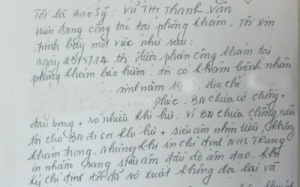 Tôi là Bác Sỹ. Vũ Thị Thanh Vân
Hiện đang công tác tại phòng khám. Tôi xin
trình bày một việc như sau:
Ngày tôi được phân công khám tại
phòng khám bảo hiểm. tôi có khám bệnh nhân
sinh năm địa chỉ
phúc. BN chưa có chồng,
đau lưng + ra nhiều khí hư. Vì BN chưa chồng nên
tôi cho BN đi soi khí hư + siêu âm
khám trong. nhưng khi in chỉ định
in nhầm sang siêu âm đầu dò âm đạo. khi
ký chỉ định tôi đã sơ xuất không đọc lại và